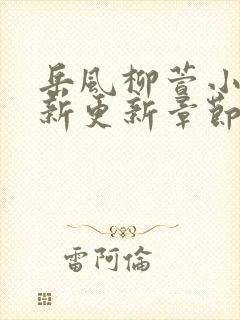 岳風柳萱小
新更新章節
雷阿倫